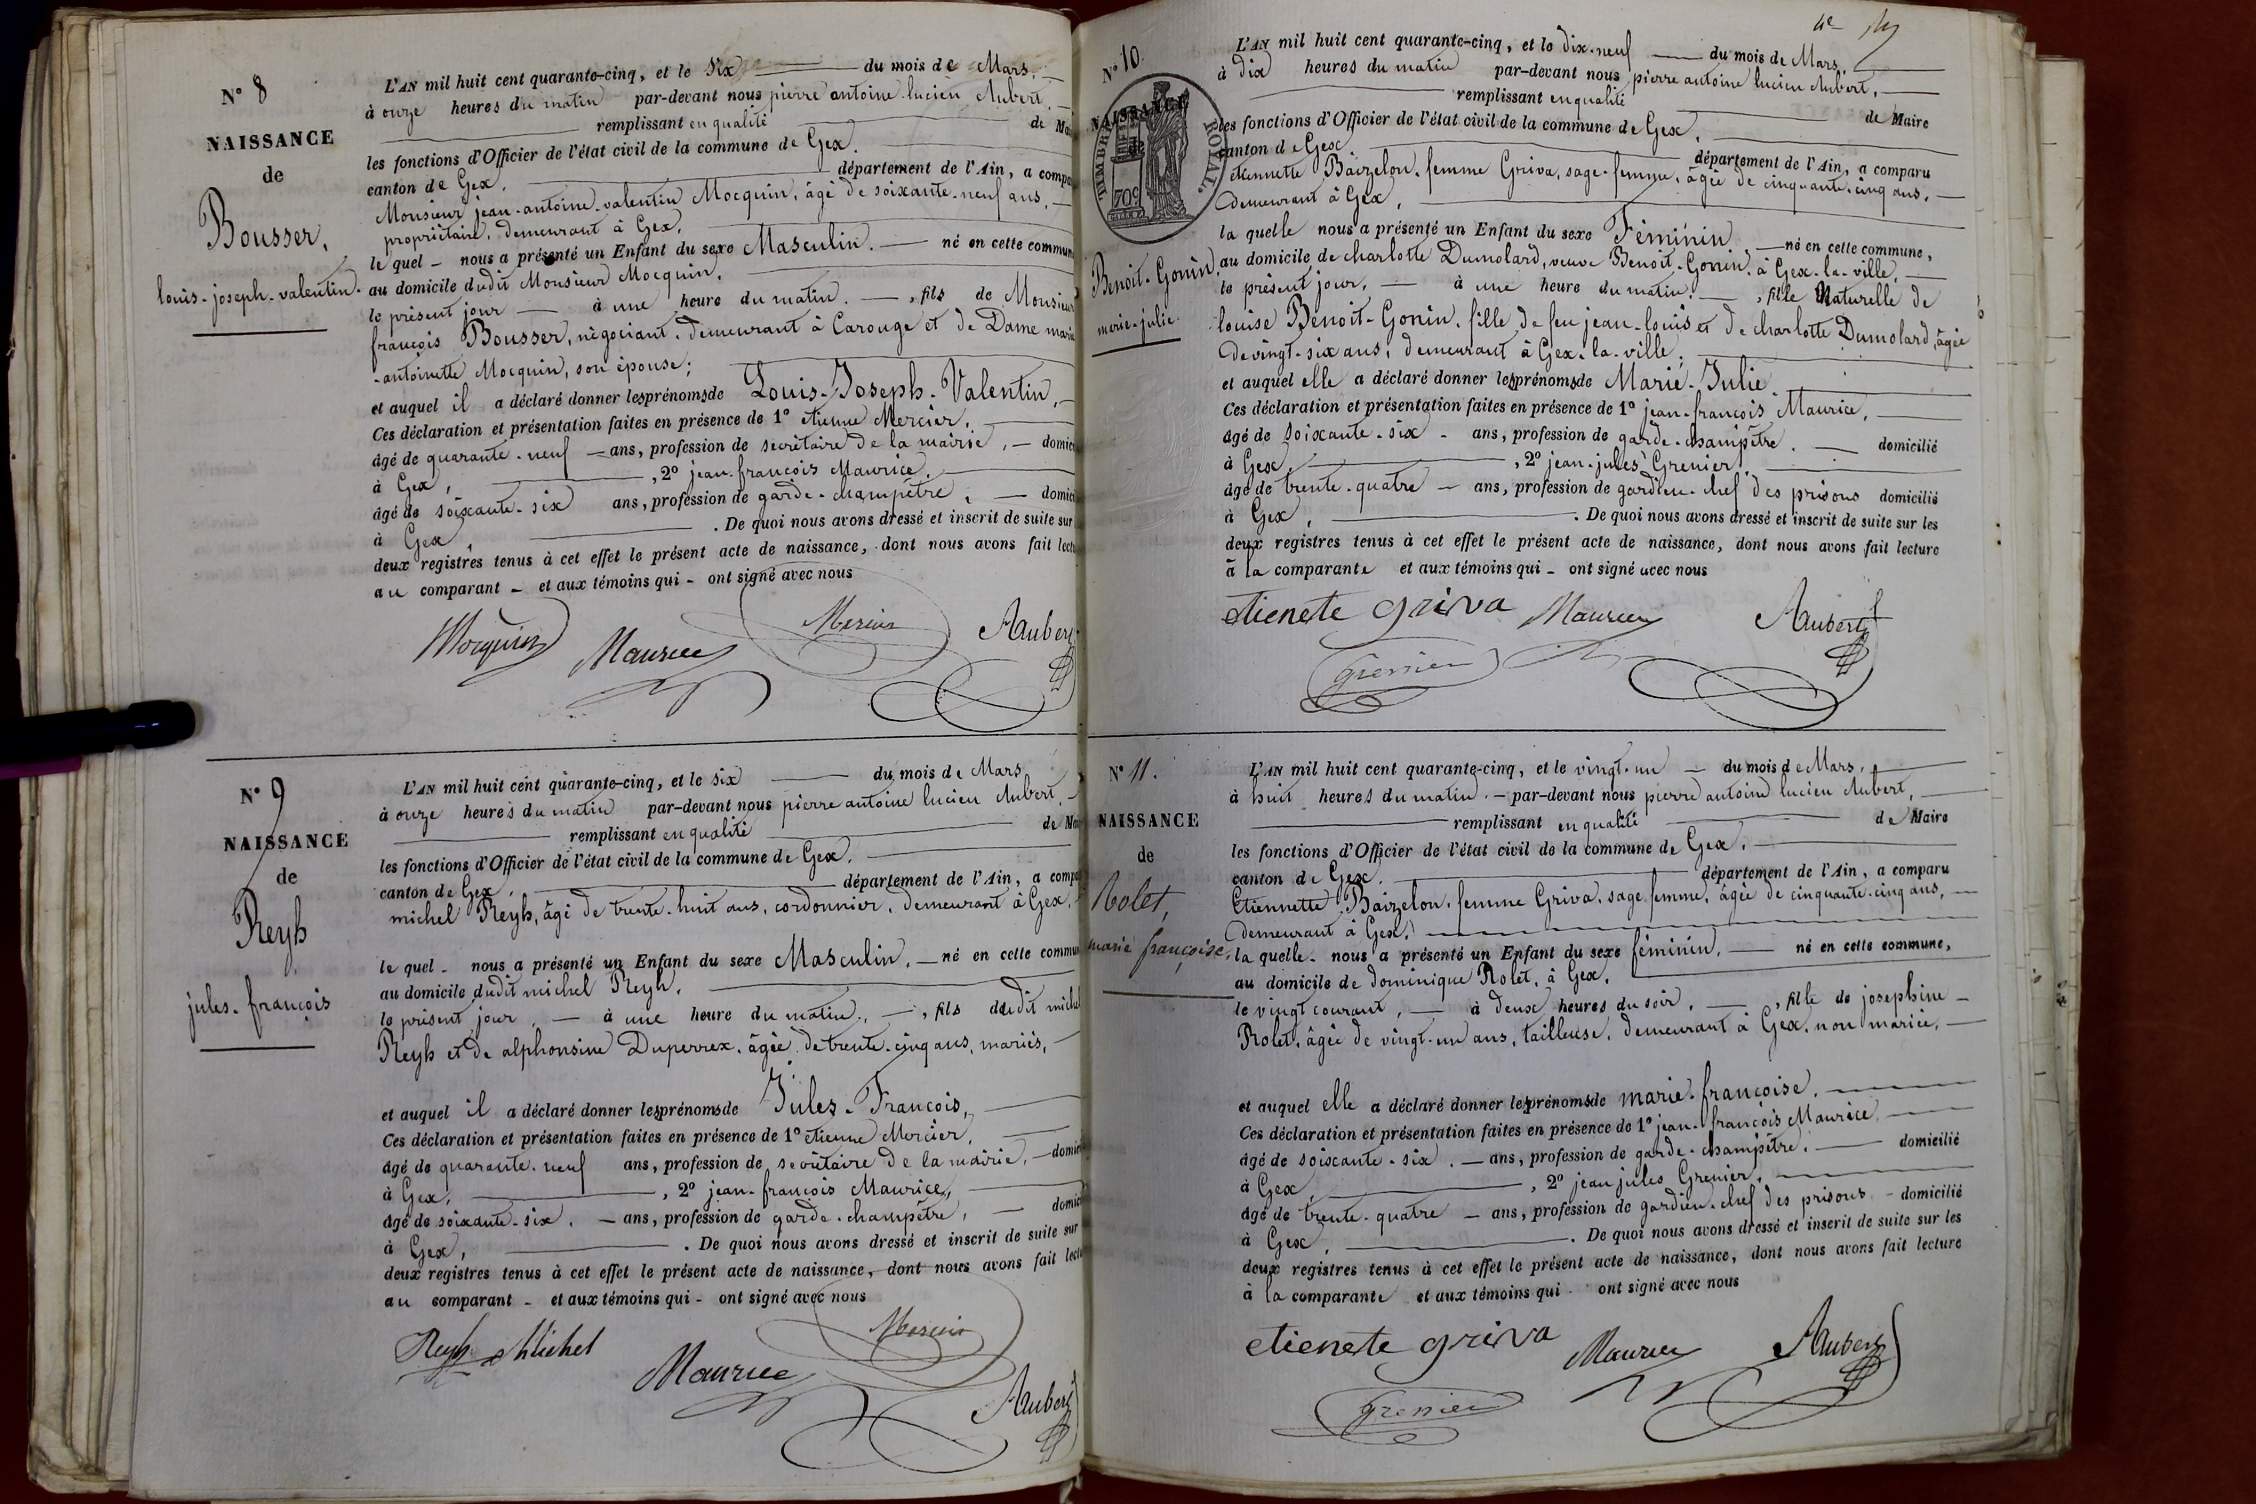 N° 8
NAISSANCE
de
Bousser,
louis-joseph-valentin.
L'AN mil huit cent quarante-cinq, et le Six du mois de Mars,
à onze heures du matin par-devant nous pierre antoine lucien Aubert,
remplissant en qualité de
les fonctions d'Officier de l'état civil de la commune de Gex,
canton de Gex, département de l'Ain, a
Monsieur jean-antoine-valentin Mocquin, âgé de soixante-neuf ans,
propriétaire, demeurant à Gex,
le quel - nous a présenté un Enfant du sexe Masculin. né en cette
au domicile dudit Monsieur Mocquin,
le présent jour à une heure du matin, fils de Monsieur
françois Bousser, négociant, demeurant à Carouge et de Dame marie
-antoinette Mocquin, son épouse;
et auquel il a déclaré donner les prénoms de Louis-Joseph-Valentin,
Ces déclaration et présentation faites en présence de 1° etienne Mercier,
âgé de quarante-neuf ans, profession de secrétaire de la mairie,
à Gex, 2° jean-françois Maurice,
âgé de soixante-six ans, profession de garde-champêtre,
à Gex, . De quoi nous avons dressé et inscrit de suite sur
deux registres tenus à cet effet le présent acte de naissance, dont nous avons fait
au comparant - et aux témoins qui - ont signé avec nous
Mocquin Maurice Mercier Aubert
N° 9
NAISSANCE
de
Reyh
jules-françois
L'AN mil huit cent quarante-cinq, et le six du mois de Mars
à onze heures du matin par-devant nous pierre antoine lucien Aubert,
remplissant en qualité de
les fonctions d'Officier de l'état civil de la commune de Gex,
canton de Gex, département de l'Ain, a
michel Reyh, âgé de trente-huit ans, cordonnier, demeurant à Gex,
le quel - nous a présenté un Enfant du sexe Masculin, né en cette
au domicile dudit michel Reyh,
le présent jour, à une heure du matin, fils dudit michel
Reyh et de alphonsine Duperrex, âgée de trente-cinq ans, mariés,
et auquel il a déclaré donner les prénoms de Jules-François,
Ces déclaration et présentation faites en présence de 1° etienne Mercier,
âgé de quarante-neuf ans, profession de secrétaire de la mairie,
à Gex, 2° jean-françois Maurice,
âgé de soixante-six, ans, profession de garde-champêtre,
à Gex, . De quoi nous avons dressé et inscrit de suite sur
deux registres tenus à cet effet le présent acte de naissance, dont nous avons fait
au comparant - et aux témoins qui - ont signé avec nous
Reyh Michel Maurice Mercier
Aubert
N° 10.
NAISSANCE
de
TIMBRE ROYAL
70c
Benoit-Gonin,
marie-julie.
L'AN mil huit cent quarante-cinq, et le dix-neuf du mois de Mars,
à dix heures du matin par-devant nous pierre antoine lucien Aubert,
remplissant en qualité de Maire
les fonctions d'Officier de l'état civil de la commune de Gex,
canton de Gex département de l'Ain, a comparu
etiennette Baizelon, femme Griva, sage-femme, âgée de cinquante-cinq ans,
demeurant à Gex,
la quelle nous a présenté un Enfant du sexe Féminin, né en cette commune,
au domicile de charlotte Dumolard, veuve Benoit-Gonin, à Gex-la-ville,
le présent jour, à une heure du matin, fille Naturelle de
louise Benoit-Gonin, fille de feu jean-louis et de charlotte Dumolard, âgée
de vingt-six ans, demeurant à Gex-la-ville;
et auquel elle a déclaré donner les prénoms de Marie-Julie
Ces déclaration et présentation faites en présence de 1° jean-françois Maurice,
âgé de soixante-six - ans, profession de garde-champêtre, domicilié
à Gex, 2° jean-jules Grenier,
âgé de trente-quatre - ans, profession de gardien-chef des prisons domicilié
à Gex, . De quoi nous avons dressé et inscrit de suite sur les
deux registres tenus à cet effet le présent acte de naissance, dont nous avons fait lecture
à la comparante et aux témoins qui - ont signé avec nous
etienete griva Maurice Aubert
grenier
N° 11.
NAISSANCE
de
Rolet,
marie françoise,
L'AN mil huit cent quarante-cinq, et le vingt-un du mois de Mars,
à huit heures du matin, par-devant nous pierre antoine lucien Aubert,
remplissant en qualité de Maire
les fonctions d'Officier de l'état civil de la commune de Gex,
canton de Gex, département de l'Ain, a comparu
Etiennette Baizelon, femme Griva, sage femme, âgée de cinquante-cinq ans,
demeurant à Gex,
la quelle - nous a présenté un Enfant du sexe féminin, né en cette commune,
au domicile de dominique Rolet, à Gex,
le vingt courant, à deux heures du soir, fille de josephine -
Rolet, âgée de vingt-un ans, tailleuse, demeurant à Gex, non mariée,
et auquel elle a déclaré donner les prénoms de marie-françoise,
Ces déclaration et présentation faites en présence de 1° jean-françois Maurice,
âgé de soixante-six, ans, profession de garde-champêtre, domicilié
à Gex, 2° jean jules Grenier,
âgé de trente-quatre - ans, profession de gardien-chef des prisons - domicilié
à Gex, . De quoi nous avons dressé et inscrit de suite sur les
deux registres tenus à cet effet le présent acte de naissance, dont nous avons fait lecture
à la comparante et aux témoins qui ont signé avec nous
etienete griva Maurice Aubert
grenier